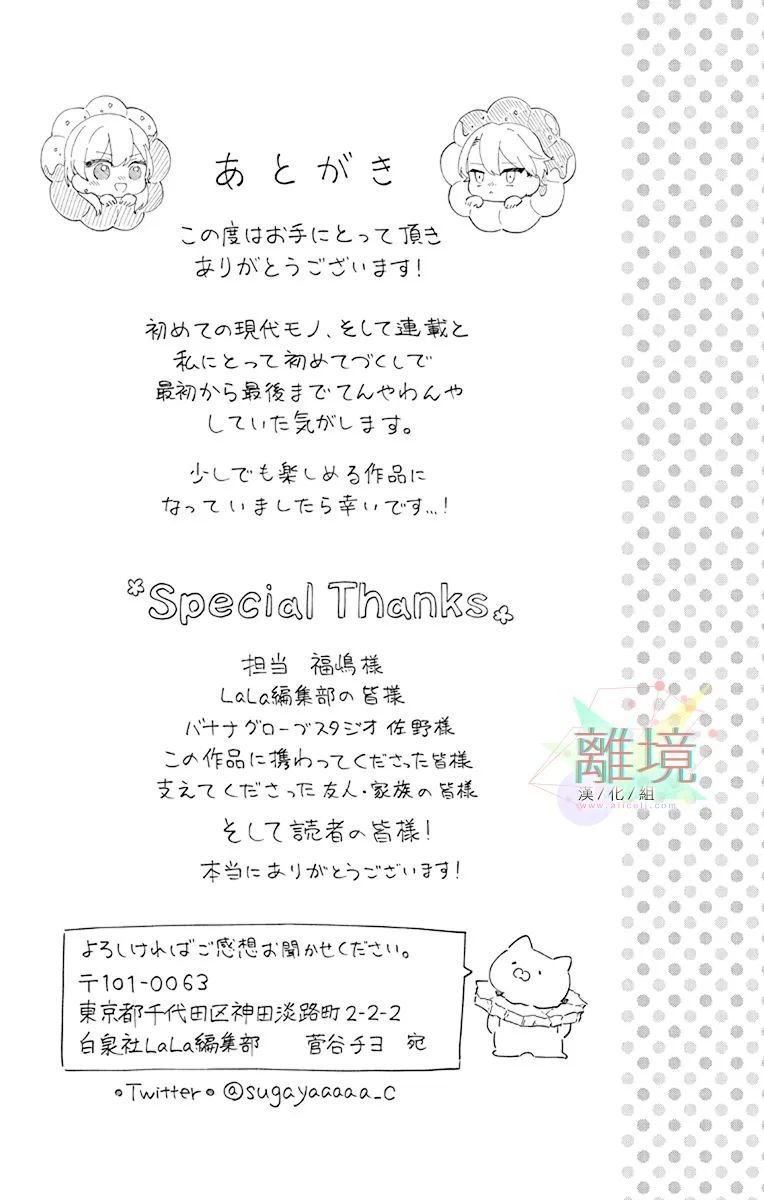 あとがき
この度はお手にとって頂き
ありがとうございます!
初めての現代モノ、そして連載と
私にとって初めてづくしで
最初から最後までてんやわんや
していた気がします。
少しでも楽しめる作品に
なっていましたら幸いです...!
Special Thanks
担当 福嶋様
LaLa編集部の皆様
バナナグローブスタジオ 佐野様
この作品に携わってくださった皆様
支えてくださった友人・家族の皆様
そして読者の皆様!
本当にありがとうございます!
離境
漢/化/組
www.alicolj.com
よろしければご感想お聞かせください。
〒101-0063
東京都千代田区神田淡路町2-2-2
白泉社LaLa編集部 菅谷チヨ 宛
•Twitter• @sugayaaaaa_c